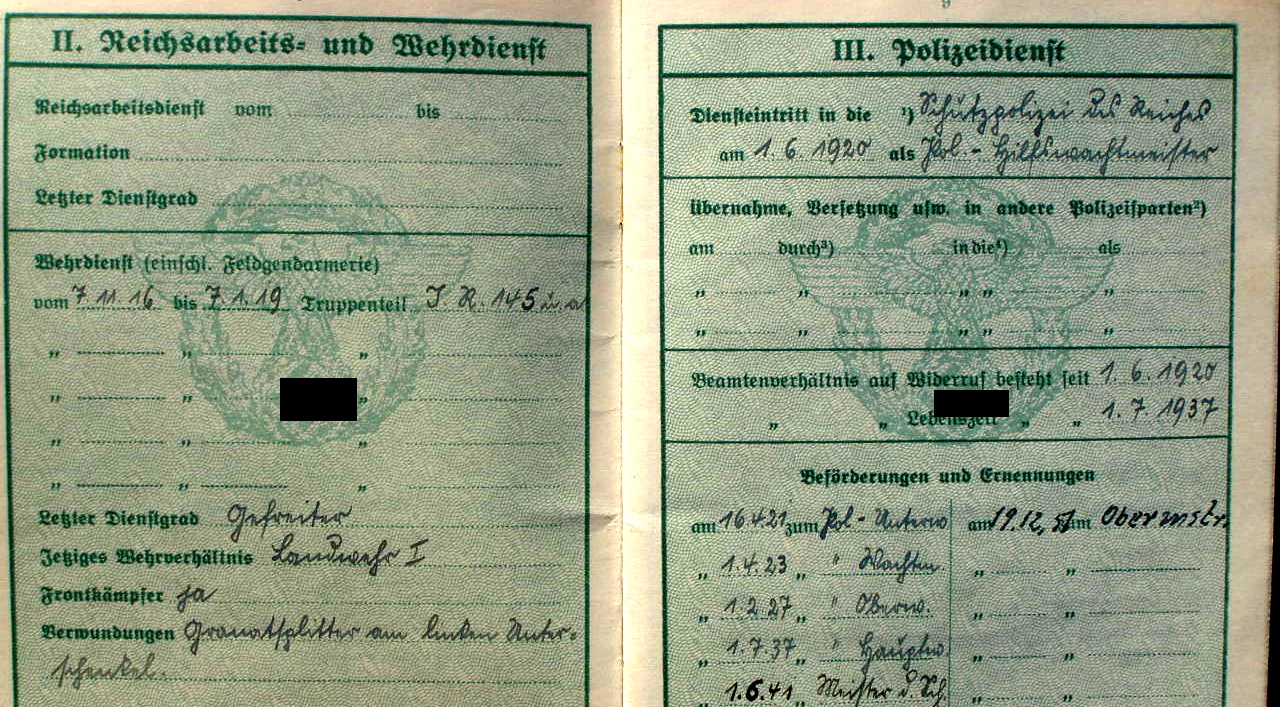 II. Reichsarbeits- und Wehrdienst
Reichsarbeitsdienst vom bis
Formation
Letzter Dienstgrad
Wehrdienst (einschl. Feldgendarmerie)
vom 7.11.16 bis 7.1.19 Truppenteil J R. 145 u. a
" " "
" " "
" " "
" " "
Letzter Dienstgrad Gefreiter
Jetziges Wehrverhältnis Landwehr I
Frontkämpfer ja
Verwundungen Granatsplitter am linken Unter-
schenkel.
III. Polizeidienst
Diensteintritt in die ¹) Schutzpolizei des Reiches
am 1.6.1920 als Pol.-Hilfswachtmeister
Übernahme, Versetzung usw. in andere Polizeisparten²)
am durch³) in die⁴) als
" " " " "
" " " " "
Beamtenverhältnis auf Widerruf besteht seit 1.6.1920
" " Lebenszeit " " 1.7.1937
Beförderungen und Ernennungen
am 16.4.21 zum Pol-Unterw am 19.12. zum Obermstr.
" 1.4.23 " " Wachtm. " "
" 1.2.27 " " Oberw. " "
" 1.7.37 " " Hauptw. " "
" 1.6.41 " Meister d. Sch. " "